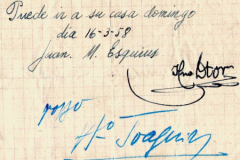 Puede ir a su casa domingo
dia 16-3-58
Juan. M. Esquius
Hno
Hº Joaquin